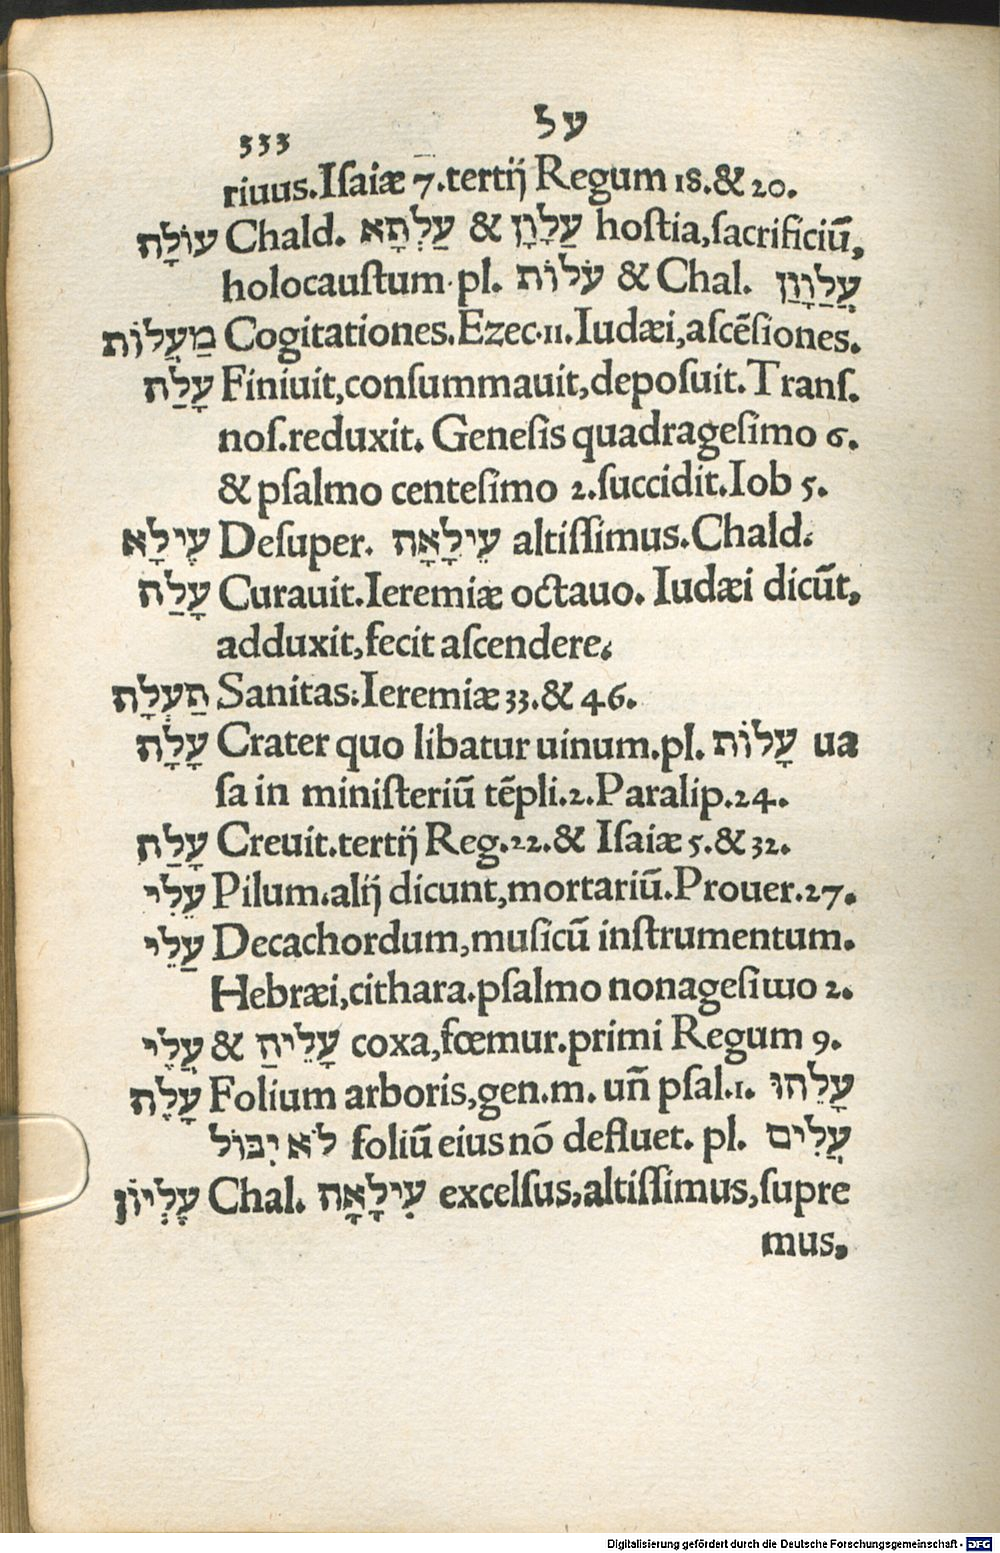 333 על
riuus.Iſaiæ 7.tertij Regum 18.& 20.
עוֹלָה Chald. עַלְתָא & עַלָוָן hoſtia,ſacrificiũ,
holocauſtum.pl. עֹלוֹת & Chal. עֲלַוָוַן
מַעֲלוֹת Cogitationes.Ezec.11.Iudæi,aſcẽſiones.
עָלַה Finiuit,conſummauit,depoſuit.Tranſ.
noſ.reduxit. Geneſis quadrageſimo 6.
& pſalmo centeſimo 2.ſuccidit.Iob 5.
עֶילָא Deſuper. עֵילָאָה altiſſimus.Chald.
עָלַה Curauit.Ieremiæ octauo. Iudæi dicũt,
adduxit,fecit aſcendere.
הַעְלָה Sanitas.Ieremiæ 33.& 46.
עָלָה Crater quo libatur uinum.pl. עָלוֹת ua
ſa in miniſteriũ tẽpli.2.Paralip.24.
עָלַה Creuit.tertij Reg.22.& Iſaiæ 5.& 32.
עֱלִי Pilum.alij dicunt,mortariũ.Prouer.27.
עַלֵי Decachordum,muſicũ inſtrumentum.
Hebræi,cithara.pſalmo nonageſimo 2.
עֲלֶי & עָלֵיהַ coxa,fœmur.primi Regum 9.
עָלֶה Folium arboris,gen.m. uñ pſal.1. עָלֵהוּ
לֹא יִבּוֹל foliũ eius nõ defluet. pl. עֲלִים
עֶלְיוֹן Chal. עִילָאָה excelſus,altiſſimus,ſupre
mus,
Digitalisierung gefördert durch die Deutsche Forschungsgemeinschaft - DFG